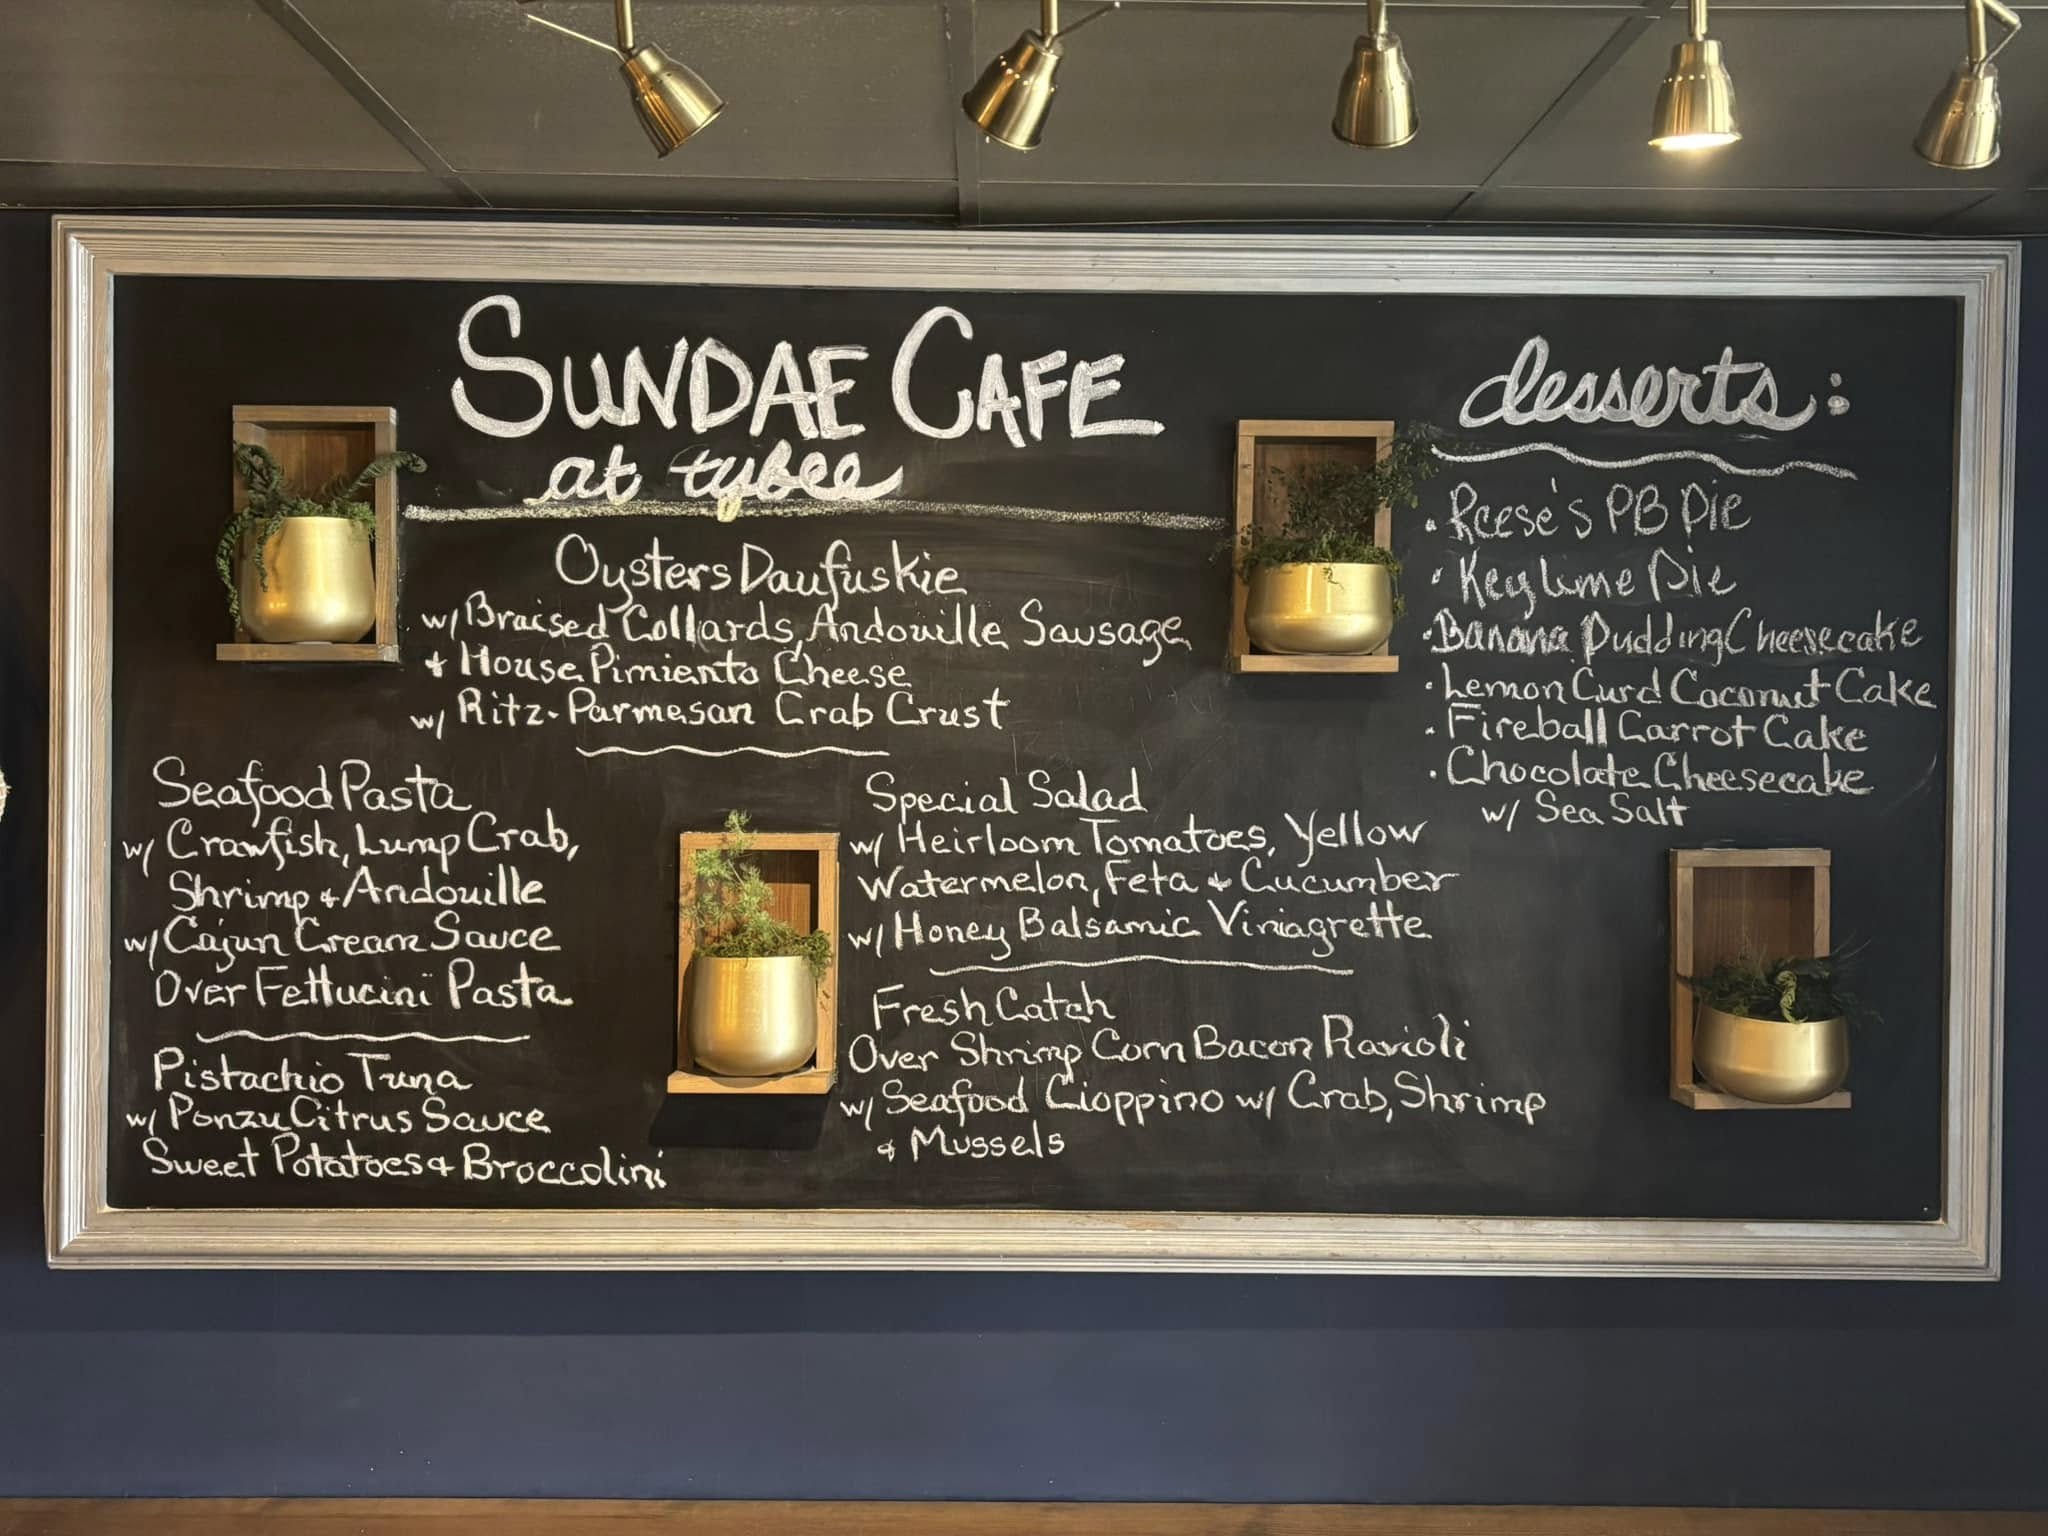 SUNDAE CAFE
at tybee
Oysters Daufuskie
w/ Braised Collards, Andouille Sausage
+ House Pimiento Cheese
w/ Ritz-Parmesan Crab Crust
Seafood Pasta
w/ Crawfish, Lump Crab,
Shrimp + Andouille
w/ Cajun Cream Sauce
Over Fettucini Pasta
Pistachio Tuna
w/ Ponzu Citrus Sauce
Sweet Potatoes + Broccolini
Special Salad
w/ Heirloom Tomatoes, Yellow
Watermelon, Feta + Cucumber
w/ Honey Balsamic Viniagrette
Fresh Catch
Over Shrimp Corn Bacon Ravioli
w/ Seafood Cioppino w/ Crab, Shrimp
+ Mussels
desserts:
· Reese's PB Pie
· Key lime Pie
· Banana Pudding Cheesecake
· Lemon Curd Coconut Cake
· Fireball Carrot Cake
· Chocolate Cheesecake
w/ Sea Salt